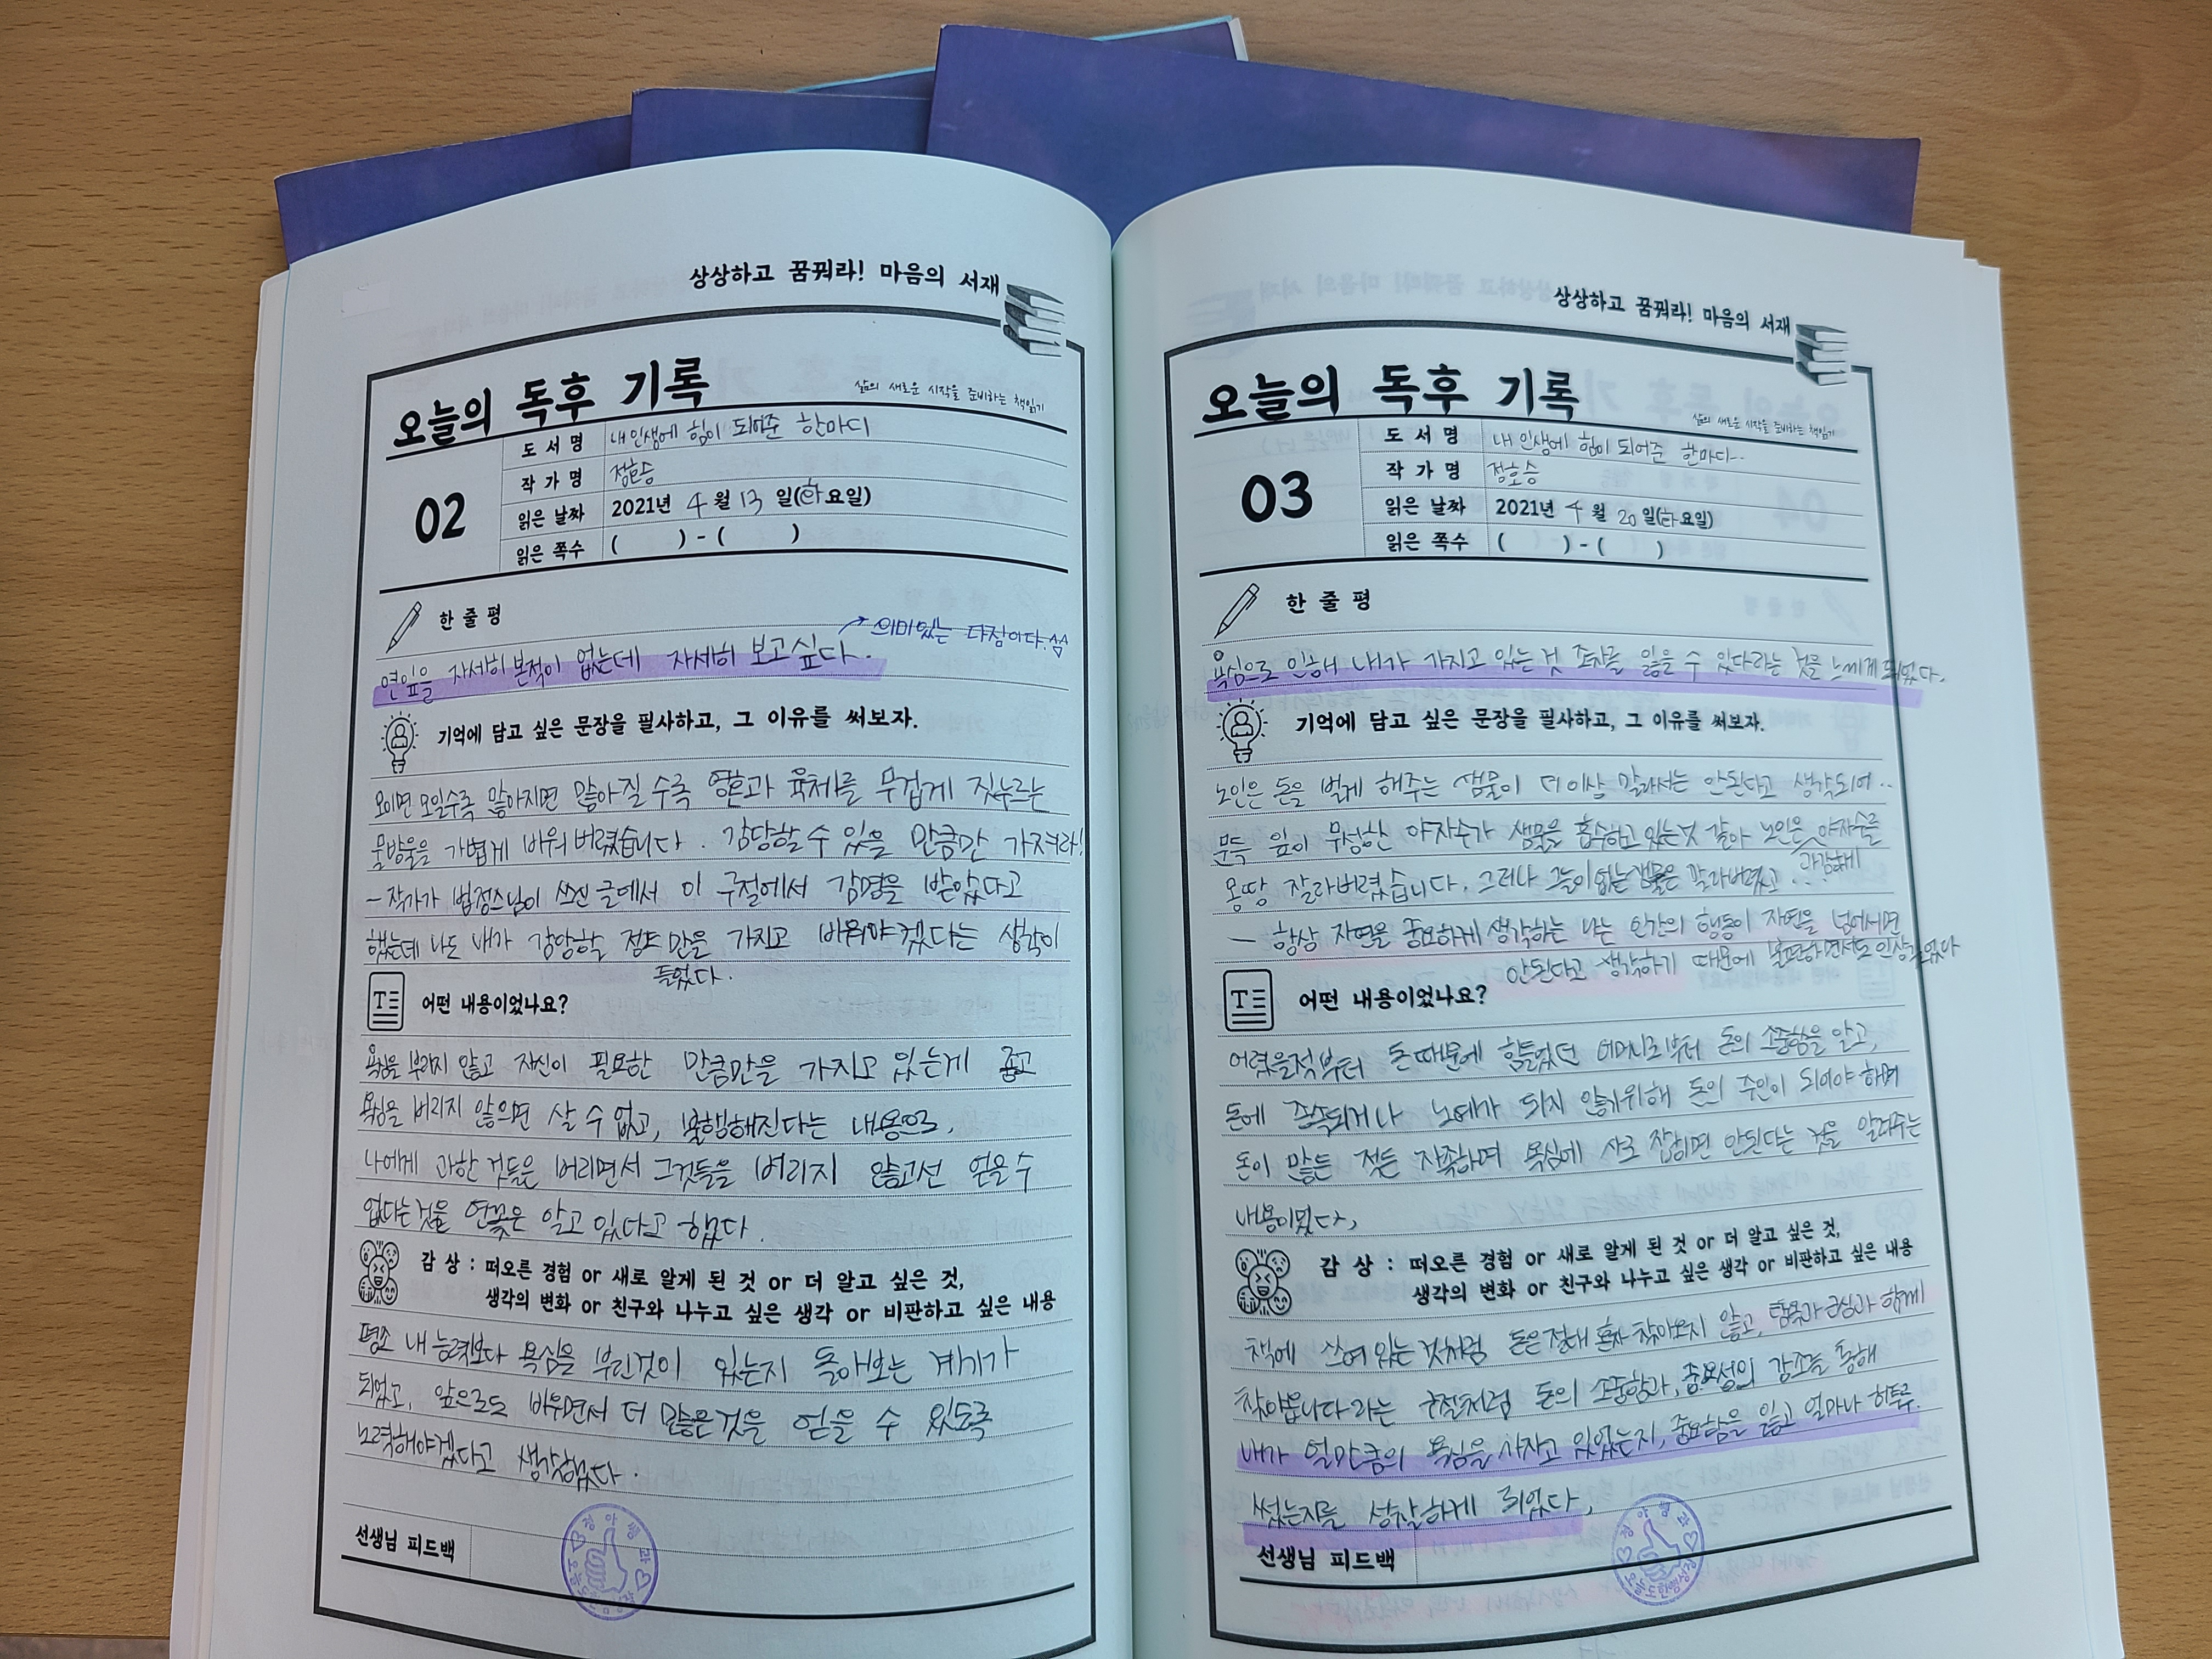 상상하고 꿈꿔라! 마음의 서재
오늘의 독후 기록
삶의 새로운 시작을 준비하는 책읽기
02
도 서 명 내 인생에 힘이 되어준 한마디
작 가 명 정호승
읽은 날짜 2021년 4월 13일(화요일)
읽은 쪽수 ( ) - ( )
한 줄 평
→ 의미있는 다짐이다.
연잎을 자세히 본적이 없는데 자세히 보고싶다.
기억에 담고 싶은 문장을 필사하고, 그 이유를 써보자.
모이면 모일수록 많아지면 많아질수록 영혼과 육체를 무겁게 짓누르는
물방울을 가볍게 비워버렸습니다. 감당할 수 있을 만큼만 가져라!
- 작가가 법정스님이 쓰신 글에서 이 구절에서 감명을 받았다고
했는데 나도 내가 감당할 정도만을 가지고 비워야겠다는 생각이
들었다.
어떤 내용이었나요?
욕심을 부리지 않고 자신이 필요한 만큼만을 가지고 있는게 좋고
욕심을 버리지 않으면 살 수 없고, 불행해진다는 내용으로,
나에게 과한 것들은 버리면서 그것들을 버리지 않고선 얻을 수
없다는것을 연꽃은 알고 있다고 했다.
감 상 : 떠오른 경험 or 새로 알게 된 것 or 더 알고 싶은 것,
생각의 변화 or 친구와 나누고 싶은 생각 or 비판하고 싶은 내용
평소 내 능력보다 욕심을 부린것이 있는지 돌아보는 계기가
되었고, 앞으로도 비우면서 더 많은것을 얻을 수 있도록
노력해야겠다고 생각했다.
선생님 피드백
상상하고 꿈꿔라! 마음의 서재
오늘의 독후 기록
삶의 새로운 시작을 준비하는 책읽기
03
도 서 명 내 인생에 힘이 되어준 한마디..
작 가 명 정호승
읽은 날짜 2021년 4월 20일(화요일)
읽은 쪽수 ( ) - ( )
한 줄 평
욕심으로 인해 내가 가지고 있는 것 조차를 잃을 수 있다라는 것을 느끼게 되었다.
기억에 담고 싶은 문장을 필사하고, 그 이유를 써보자.
노인은 돈을 벌게 해주는 샘물이 더이상 말라서는 안된다고 생각되어..
문득 잎이 무성한 야자수가 샘물을 흡수하고 있는것 같아 노인은 야자수를
과감하게
몽땅 잘라버렸습니다. 그러나 그늘이 없는 샘물은 말라버렸고..
- 항상 자연을 중요하게 생각하는 나는 인간의 행동이 자연을 넘어서면
안된다고 생각하기 때문에 불편하면서도 인상깊었다
어떤 내용이었나요?
어렸을적부터 돈 때문에 힘들었던 어머니로부터 돈의 소중함을 알고,
돈에 종속되거나 노예가 되지 않기위해 돈의 주인이 되어야 하며
돈이 많든 적든 자족하며 욕심에 사로 잡히면 안된다는 것을 알려주는
내용이었다.
감 상 : 떠오른 경험 or 새로 알게 된 것 or 더 알고 싶은 것,
생각의 변화 or 친구와 나누고 싶은 생각 or 비판하고 싶은 내용
책에 쓰여 있는 것처럼 돈은 절대 혼자 찾아오지 않고, 탐욕과 근심과 함께
찾아옵니다 라는 구절처럼 돈의 소중함과, 중요성의 강조를 통해
내가 얼만큼의 욕심을 가지고 있었는지, 중요함을 잊고 얼마나 허투루
썼는지를 성찰하게 되었다.
선생님 피드백
오늘도한뼘성장